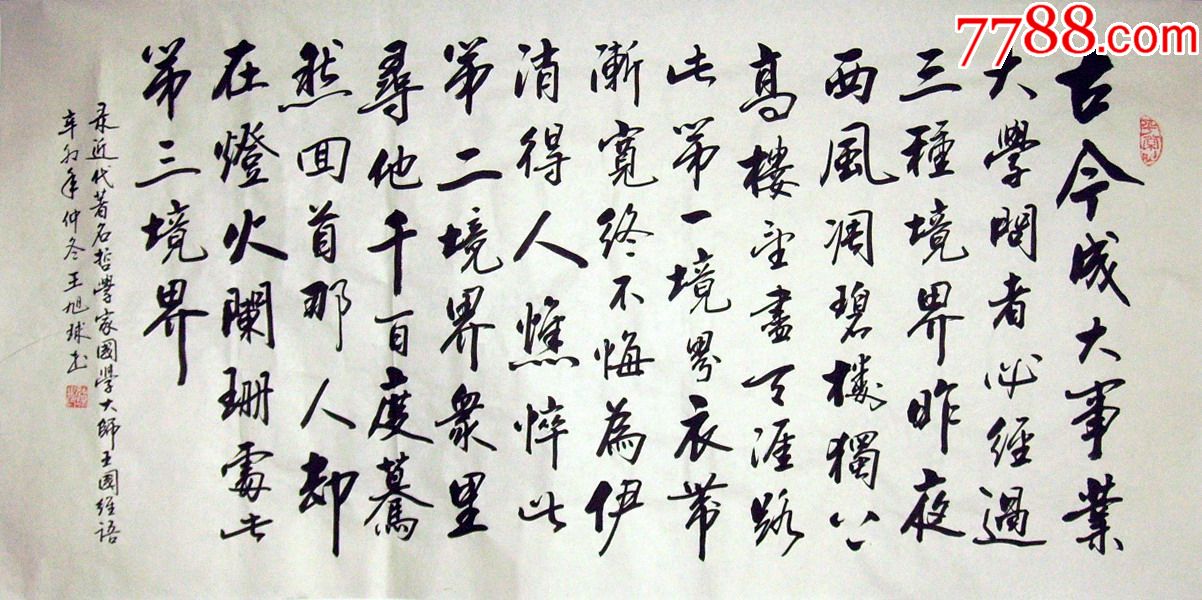 7788.com
古今成大事業
大學問者必經過
三種境界昨夜
西風凋碧樹獨上
高樓望盡天涯路
此第一境界衣帶
漸寬終不悔為伊
消得人憔悴此
第二境界衆里
尋他千百度驀
然回首那人却
在燈火闌珊處此
第三境界
录近代著名哲學家國學大師王國維語
辛卯年仲冬王旭球书